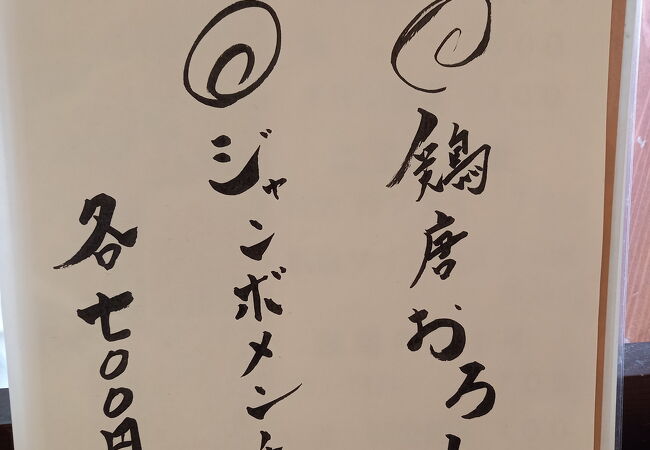 鶏唐おろし
ジャンボメンチ
各七〇〇円